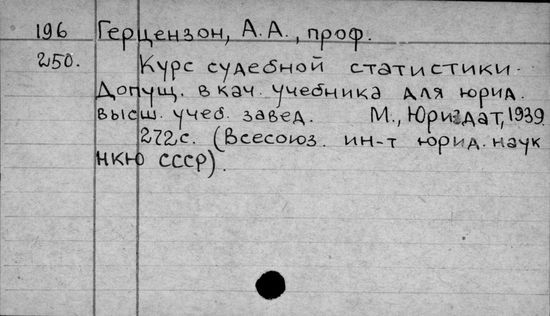 196 Герцензон, А.А., проф.
250. Курс судебной статистики.
Допущ. в кач. учебника для юрид.
высш. учеб. завед. М., Юриздат, 1939
272 с. (Всесоюз. ин-т юрид. наук
НКЮ СССР).